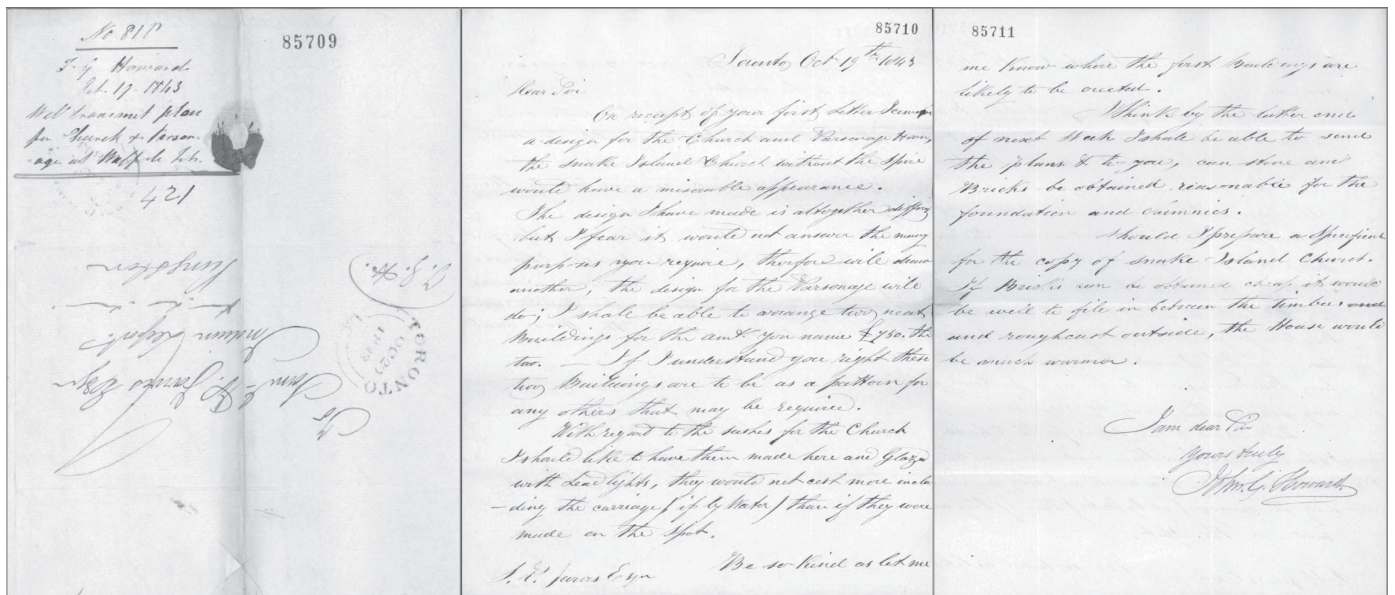 No 818
85709
J. G. Howard
Oct. 19 1843
Will transmit plan
for Church & Parson
age at
124
Kingston
Indian
Saml P. Jarvis Esqr
To
J. G. H.
TORONTO
OC 21
1843
85710
Toronto Oct 19th 1843
Dear Sir
On receipt of your first letter I
a design for the Church and Parsonage House,
the Snake Island Church without the Spire
would have a miserable appearance.
The design I have made is altogether differ
but I fear it would not answer the many
purposes you require, therefore will draw
another, the design for the Parsonage will
do; I shall be able to arrange two neat
Buildings for the amt. you name £750. the
two. — If I understand you right these
two Buildings are to be as a pattern for
any others that may be required.
With regard to the sashes for the Church
I should like to have them made here and Glazed
with Lead lights, they would not cost more inclu
-ding the carriage (if by Water) than if they were
made on the spot.
Be so kind as let me
S. P. Jarvis Esqr
85711
me know where the first Buildings are
likely to be erected.
I think by the latter end
of next Week I shall be able to send
the plans & to you, can stone and
Bricks be obtained reasonable for the
foundation and chimnies.
Should I prepare a Specific
for the copy of Snake Island Church.
If Bricks can be obtained cheap it would
be well to fill in between the timbers and
and roughcast outside, the House would
be much warmer.
I am dear Sir
Yours truly
John G. Howard